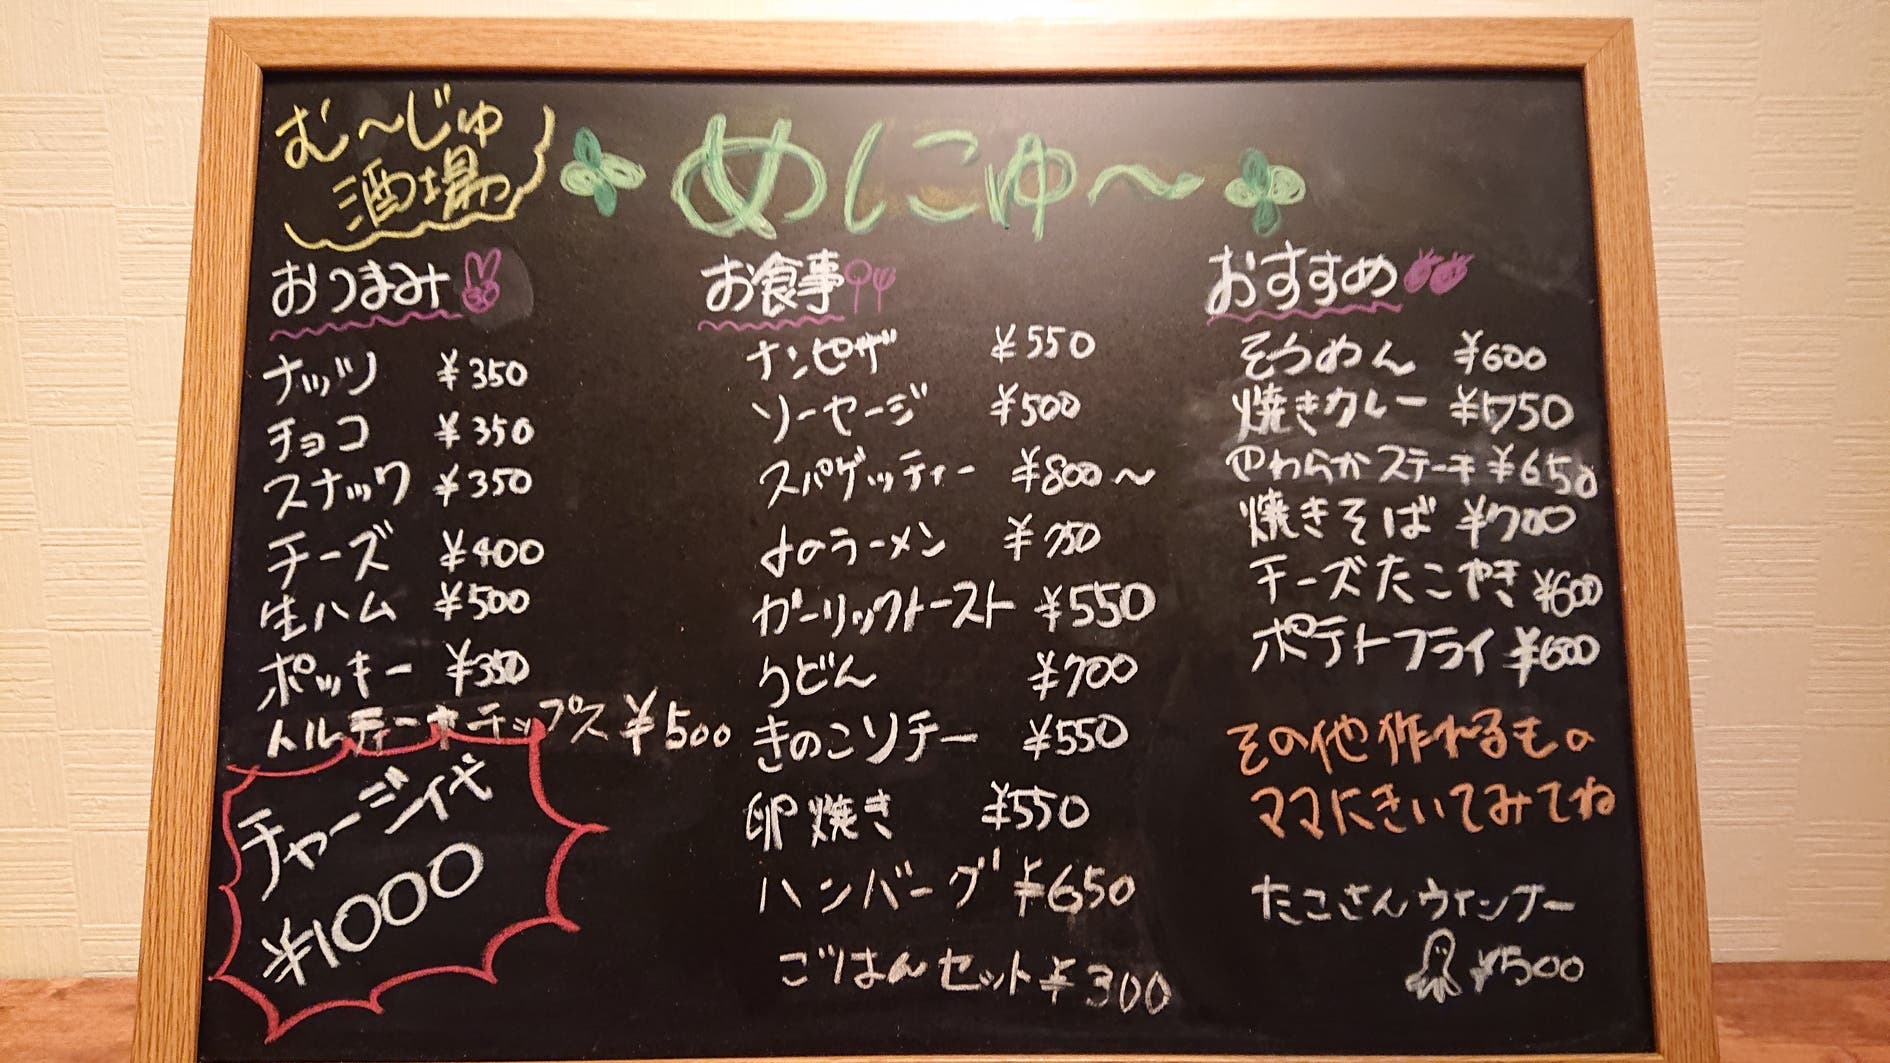 む〜じゅ
酒場
めにゅ〜
おつまみ
ナッツ ¥350
チョコ ¥350
スナック ¥350
チーズ ¥400
生ハム ¥500
ポッキー ¥350
トルティーヤチップス ¥500
チャージ代
¥1000
お食事
ナンピザ ¥550
ソーセージ ¥500
スパゲッティー ¥800〜
ラーメン ¥750
ガーリックトースト ¥550
うどん ¥700
きのこソテー ¥550
卵焼き ¥550
ハンバーグ ¥650
ごはんセット ¥300
おすすめ
そうめん ¥600
焼きカレー ¥750
やわらかステーキ ¥650
焼きそば ¥700
チーズたこやき ¥600
ポテトフライ ¥600
その他作れるもの
ママにきいてみてね
たこさんウインナー
¥500